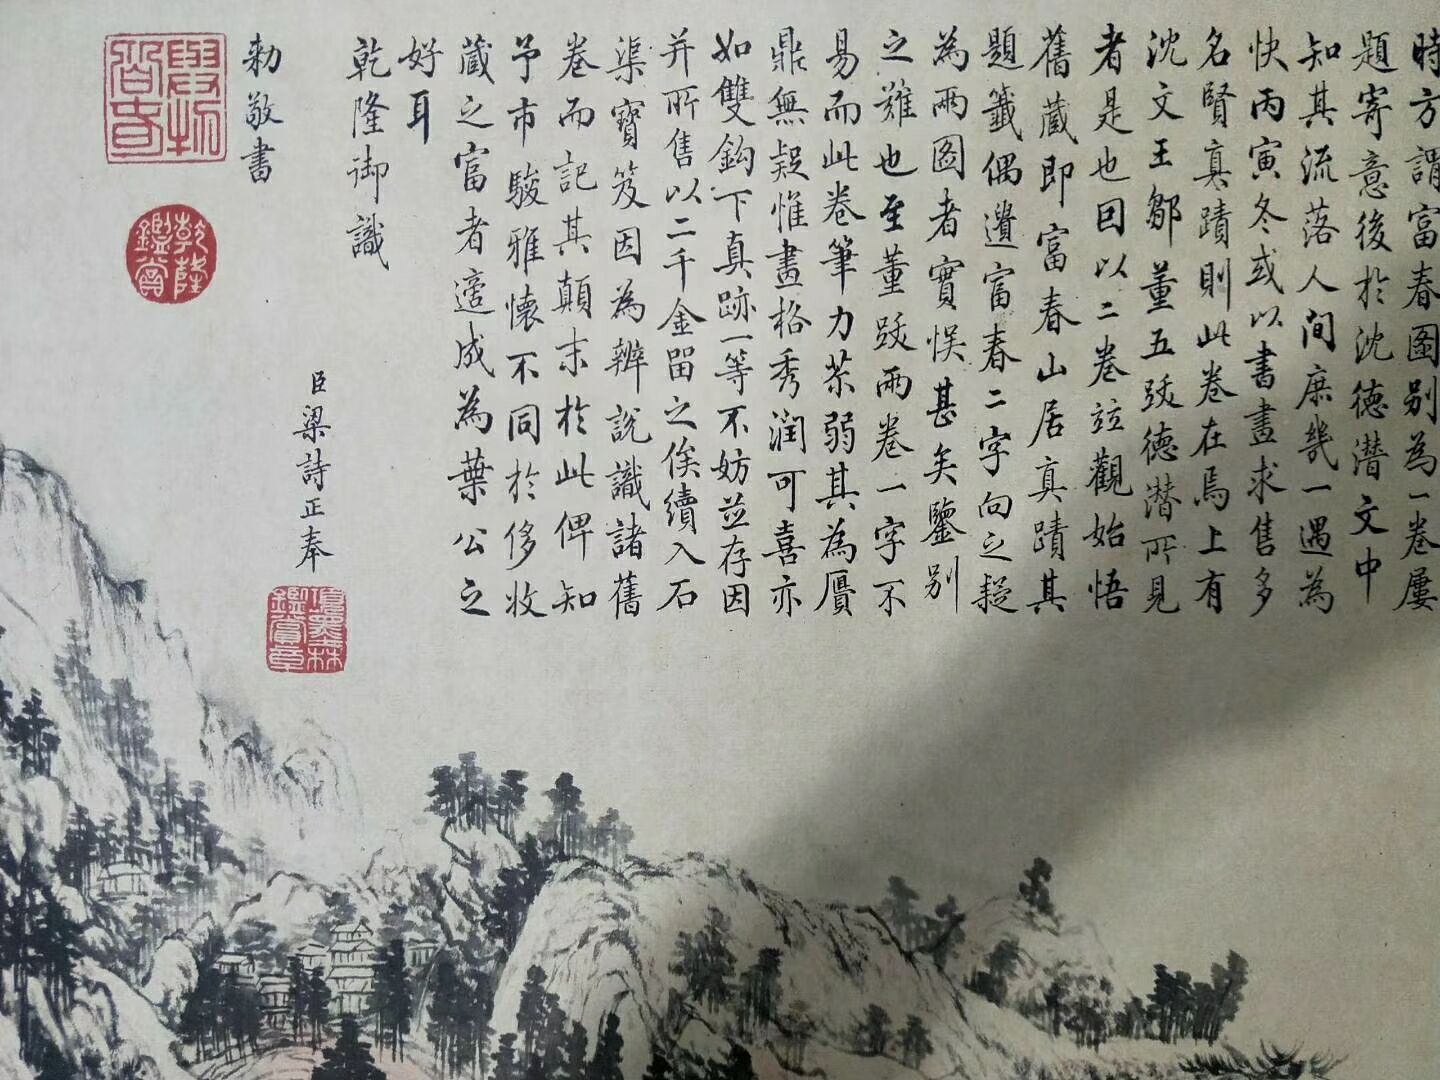 時方謂富春圖别為一卷屢
題寄意後於沈德潛文中
知其流落人間庶幾一遇為
快丙寅冬或以書畫求售多
名賢真蹟則此卷在焉上有
沈文王鄒董五跋德潛所見
者是也回以二卷竝觀始悟
舊藏即富春山居真蹟其
題籤偶遺富春二字向之疑
為兩圖者實悞甚矣鑒别
之難也至董跋兩卷一字不
易而此卷筆力苶弱其為贋
鼎無疑惟畫格秀潤可喜亦
如雙鈎下真跡一等不妨並存因
并所售以二千金留之俟續入石
渠寶笈因為辨說識諸舊
卷而記其顛末於此俾知
予市駿雅懷不同於侈收
藏之富者適成為葉公之
好耳
乾隆御識
臣梁詩正奉
勅敬書
乾隆
鑑賞
鑑賞章